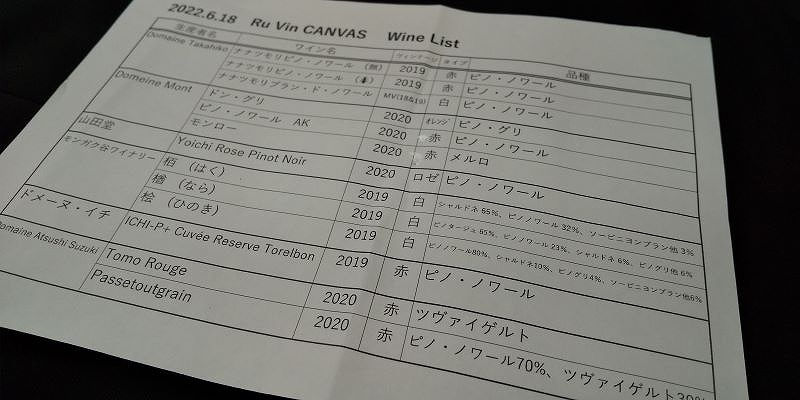 2022.6.18 Ru Vin CANVAS Wine List
生産者名 ワイン名 ヴィンテージ タイプ 品種
Domaine Takahiko ナナツモリピノ・ノワール 2019 赤 ピノ・ノワール
ナナツモリピノ・ノワール 2019 赤 ピノ・ノワール
ナナツモリブラン・ド・ノワール MV(18&19) 白 ピノ・ノワール
Domeine Mont ドン・グリ 2020 オレンジ ピノ・グリ
ピノ・ノワール AK 2020 赤 ピノ・ノワール
モンロー 2020 赤 メルロ
山田堂 Yoichi Rose Pinot Noir 2020 ロゼ ピノ・ノワール
モンガク谷ワイナリー 栢 (はく) 2019 白 シャルドネ 65%、ピノノワール 32%、ソービニヨンブラン他 3%
楢 (なら) 2019 白 ピノタージュ 65%、ピノノワール 23%、シャルドネ 6%、ピノグリ他 6%
桧 (ひのき) 2019 白 ピノノワール80%、シャルドネ10%、ピノグリ4%、ソービニヨンブラン他6%
ドメーヌ・イチ ICHI-P+ Cuvée Reserve Torelbon 2019 赤 ピノ・ノワール
Domaine Atsushi Suzuki Tomo Rouge 2020 赤 ツヴァイゲルト
Passetoutgrain 2020 赤 ピノ・ノワール70%、ツヴァイゲルト30%